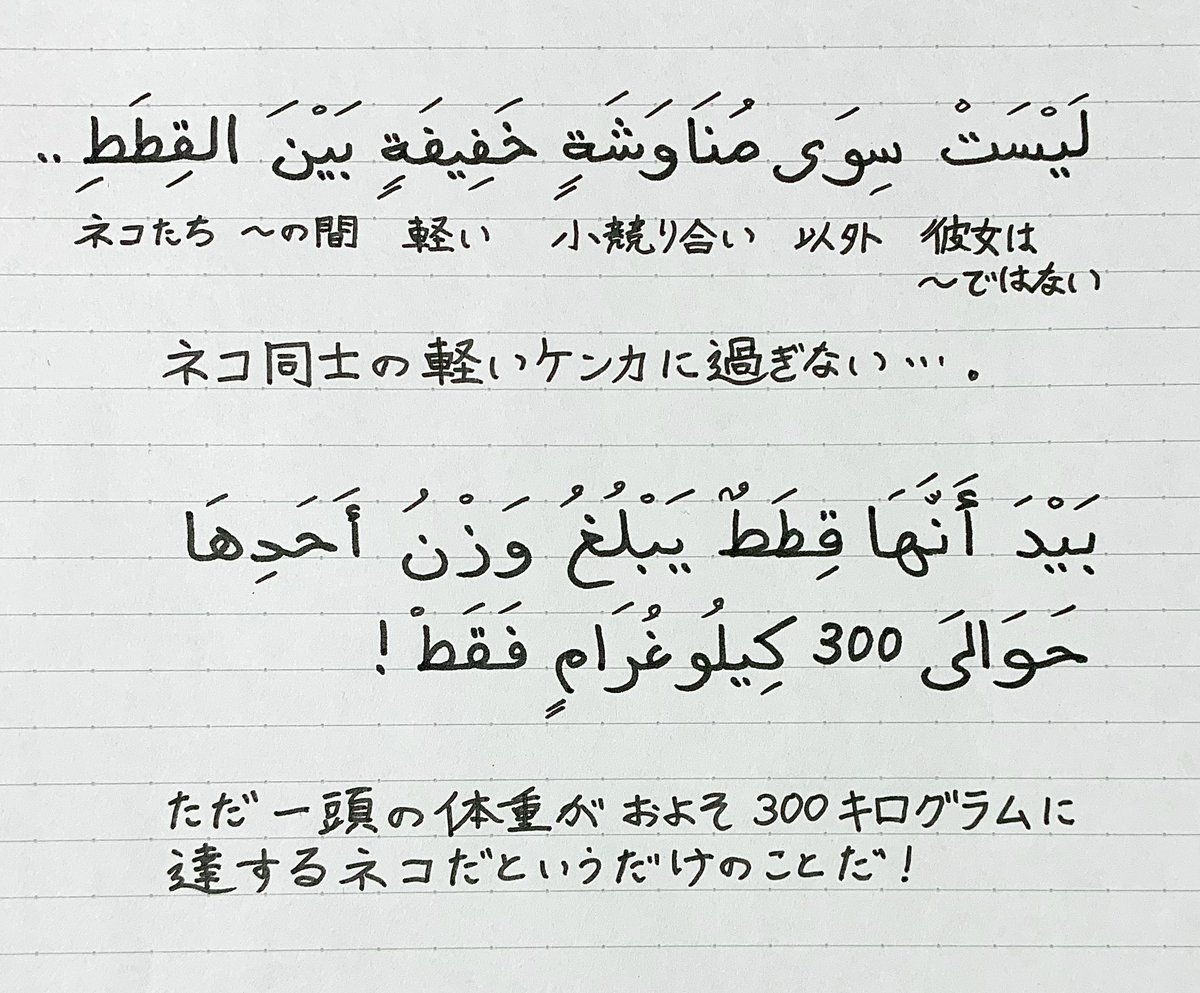 لَيْسَتْ سِوَى مُنَاوَشَةٍ خَفِيفَةٍ بَيْنَ القِطَطِ..
ネコたち 〜の間 軽い 小競り合い 以外 彼女は
〜ではない
ネコ同士の軽いケンカに過ぎない…。
بَيْدَ أَنَّهَا قِطَطٌ يَبْلُغُ وَزْنُ أَحَدِهَا
حَوَالَى 300 كِيلُوغُرَامٍ فَقَطْ!
ただ一頭の体重がおよそ300キログラムに
達するネコだというだけのことだ！